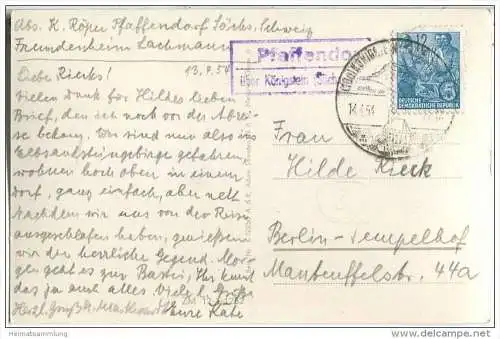 Abs. K. Röper Pfaffendorf Sächs. Schweiz
Fremdenheim Lachmann
13.9.54
Liebe Riecks!
Vielen Dank für Hildes lieben
Brief, den ich noch vor der Abrei-
se bekam. Wir sind nun also ins
Elbsandsteingebirge gefahren,
wohnen hoch oben in einem
Dorf, ganz einfach, aber nett.
Nachdem wir uns von der Reise
ausgeschlafen haben, genießen
wir die herrliche Gegend. Mor-
gen geht es zur Bastei, Ihr kennt
das ja auch alles. Viele
Herzl. Grüße Eure Käte
Pfaffendo
über Königstein (Sächs
12
DEUTSCHE
DEMOKRATISCHE REPUBLIK
Frau
Hilde Rieck
Berlin-Tempelhof
Manteuffelstr. 44a
Heimatsammlung
www.delcampe.net